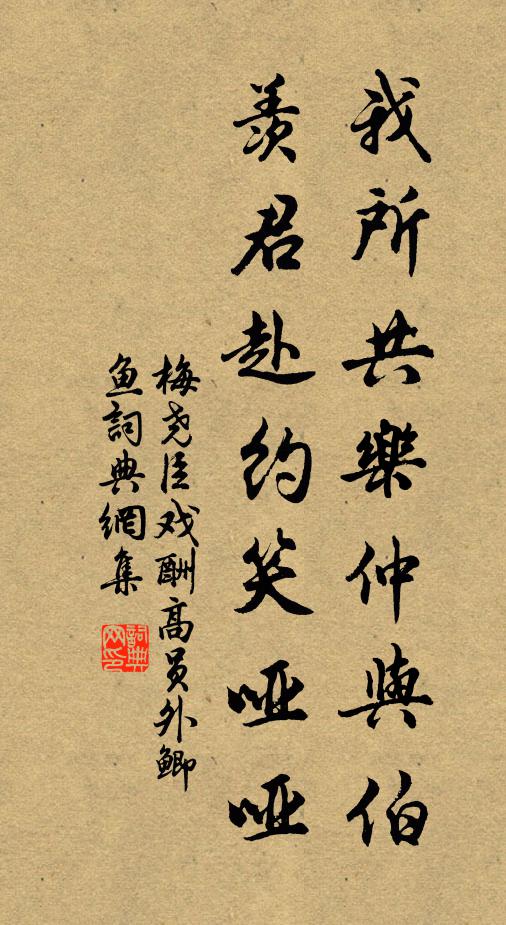 我所共樂仲與伯
羨君赴約笑啞啞
梅尧臣戏酬高员外鲫
鱼詞典網集
詞典
网印